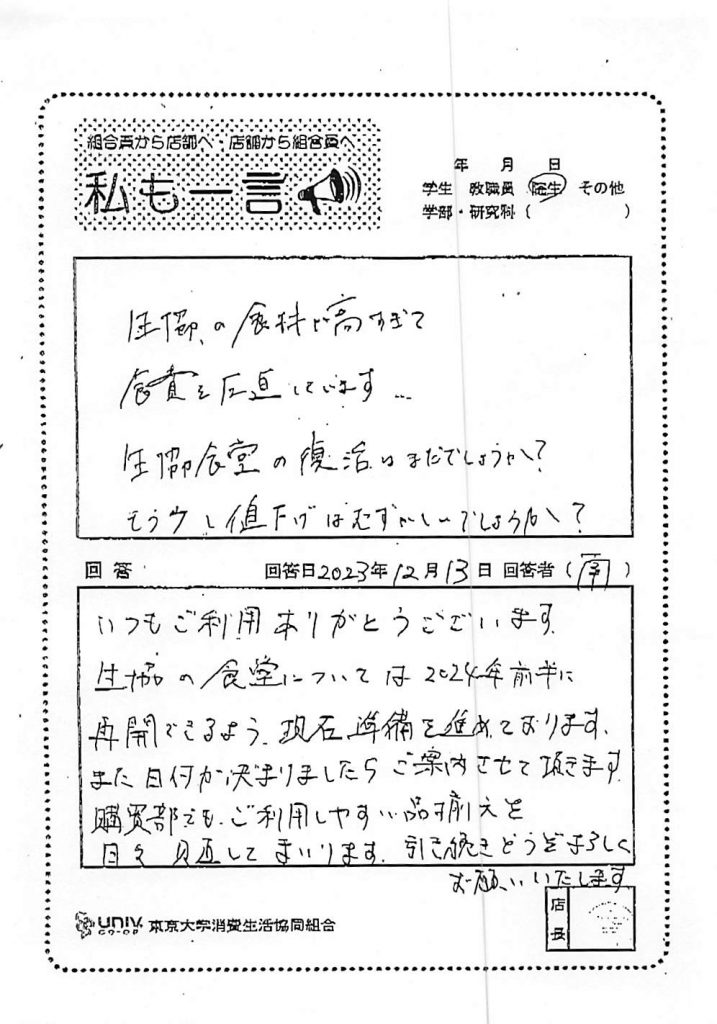 組合員から店舗へ・店舗から組合員へ
私も一言
年 月 日
学生 教職員 院生 その他
学部・研究科（ ）
生協の食料が高すぎて
食費を圧迫しています…
生協食堂の復活はまだでしょうか?
もう少し値下げはむずかしいでしょうか?
回答 回答日2023年12月13日 回答者（南）
いつもご利用ありがとうございます。
生協の食堂については2024年前半に
再開できるよう、現在準備を進めております。
また日何が決まりましたらご案内させて頂きます。
購買部でも、ご利用しやすい品揃えを
日々見直してまいります。引き続きどうぞよろしく
お願いいたします。
UNIV. CO-OP 東京大学消費生活協同組合
店長